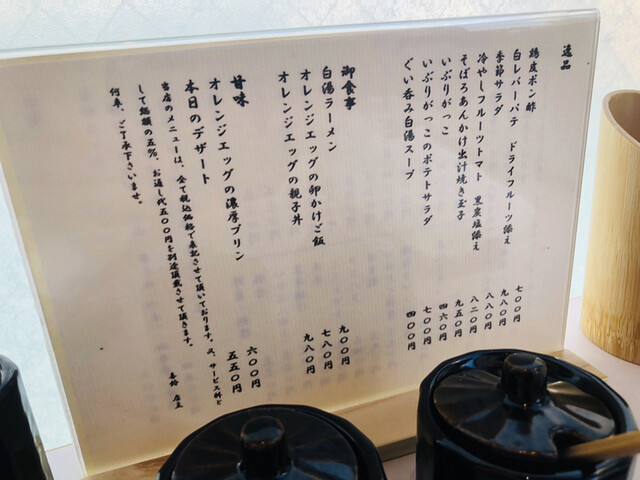 逸品
鶏皮ポン酢 七〇〇円
白レバーパテ ドライフルーツ添え 九八〇円
季節サラダ 八八〇円
冷やしフルーツトマト 黒炭塩添え 八二〇円
そぼろあんかけ出汁焼き玉子 九五〇円
いぶりがっこ 四六〇円
いぶりがっこのポテトサラダ 七〇〇円
ぐい呑み白湯スープ 四〇〇円
御食事
白湯ラーメン 九〇〇円
オレンジエッグの卵かけご飯 七八〇円
オレンジエッグの親子丼 九八〇円
甘味
オレンジエッグの濃厚プリン 六〇〇円
本日のデザート 五五〇円
当店のメニューは、全て税込価格で表記させて頂いております。又、サービス料と
して総額の五%、お通し代五〇〇円を別途頂戴させて頂きます。
何卒、ご了承下さいませ。
店主